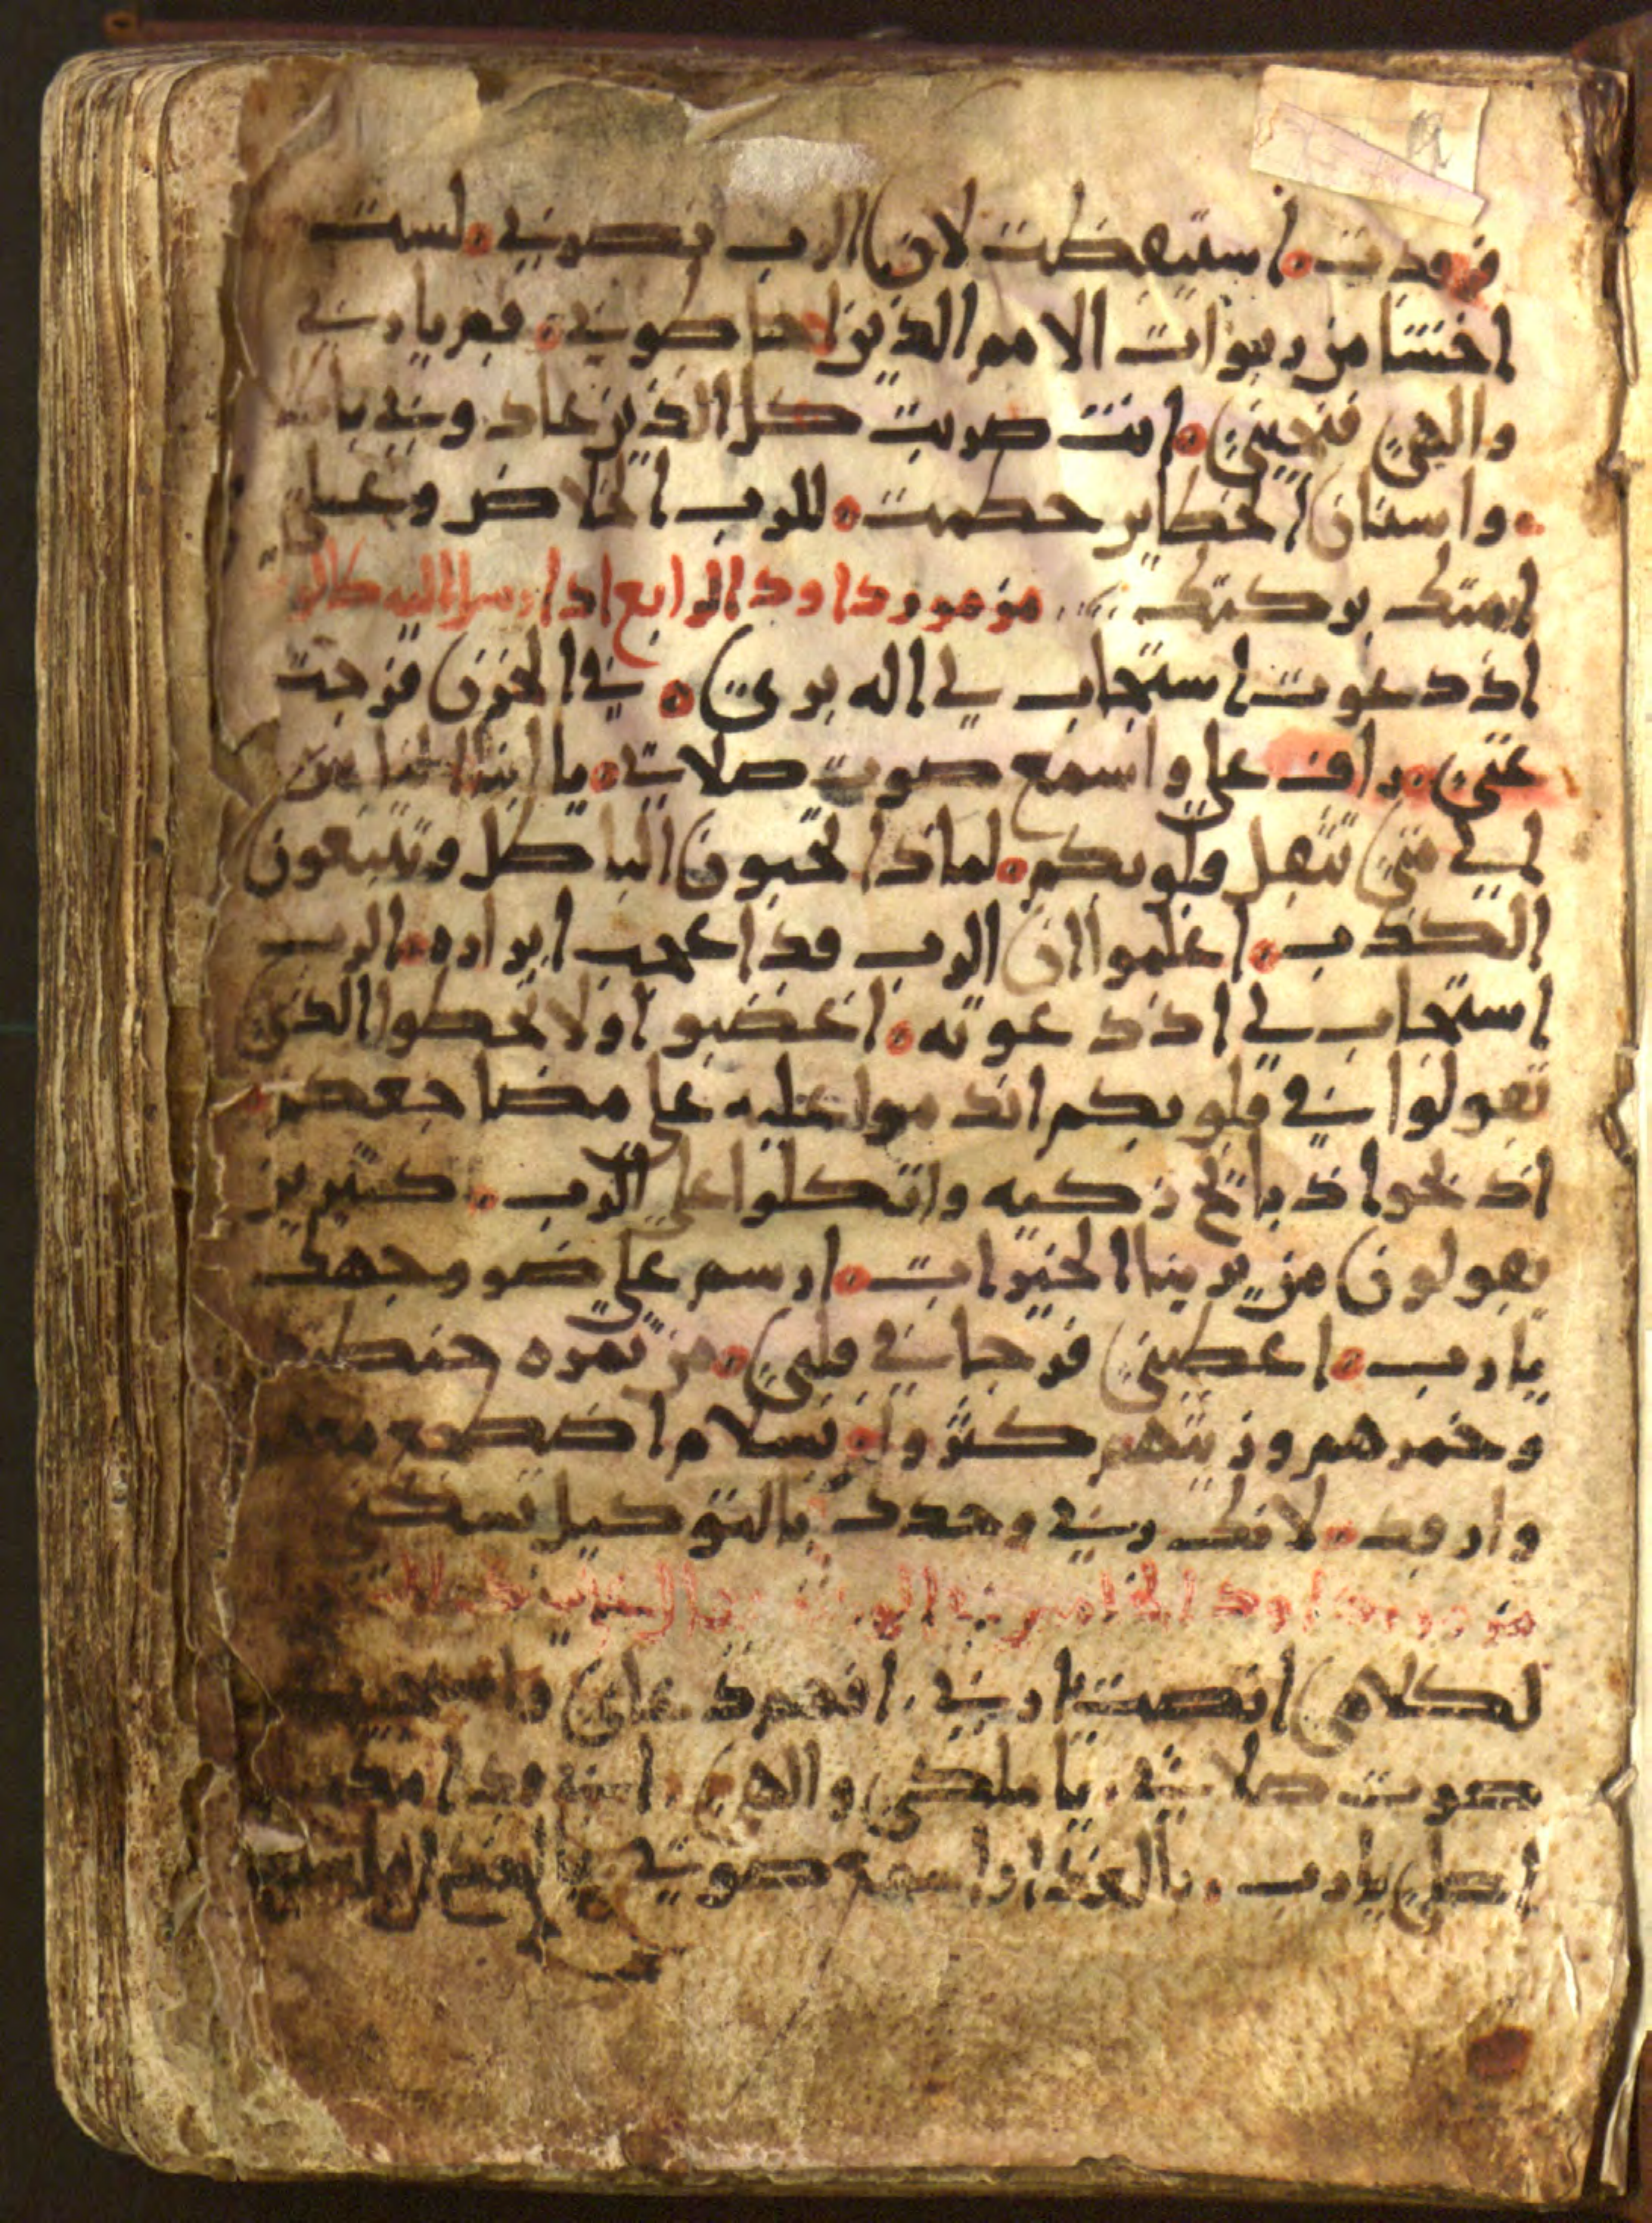 فرقدت استيقظت لان الرب ينصرني لست
اخشا من ربوات الامم الذين احاطوني قم يا رب
والهي فنجيني انت ضربت كل الذين عادوني با
واسنان الخطايين حطمت للرب الخلاص وعلى
امتك بركتك مزمور داود الرابع
اذ دعوت استجاب لي اله بري في الحزن فرجت
عني راف علي واسمع صوت صلاتي يا
الى متى تثقل قلوبكم لماذا تحبون الباطل وتتبعون
الكذب اعلموا ان الرب قد اعجب ابراره الرب
استجاب لي اذ دعوته اغضبوا ولا تخطوا الذي
تقولوا في قلوبكم اندموا عليه على مضاجعكم
اذبحوا ذبائح زكيه واتكلوا على الرب كثيرين
يقولون من يرينا الخيرات ارسم علي ضو وجهك
يا رب اعطيتني فرحا في قلبي من ثمره حنطتهم
وخمرهم وزيتهم كثروا بسلام اضطجع معا
وارقد لانك ربي وحدك بالتوكيل تسكني
مزمور داود الخامس
لكلامي انصت ربي افهم دعاي
صوت صلاتي يا ملكي والهي
اصلي يا رب بالغداه اسمع صوتي